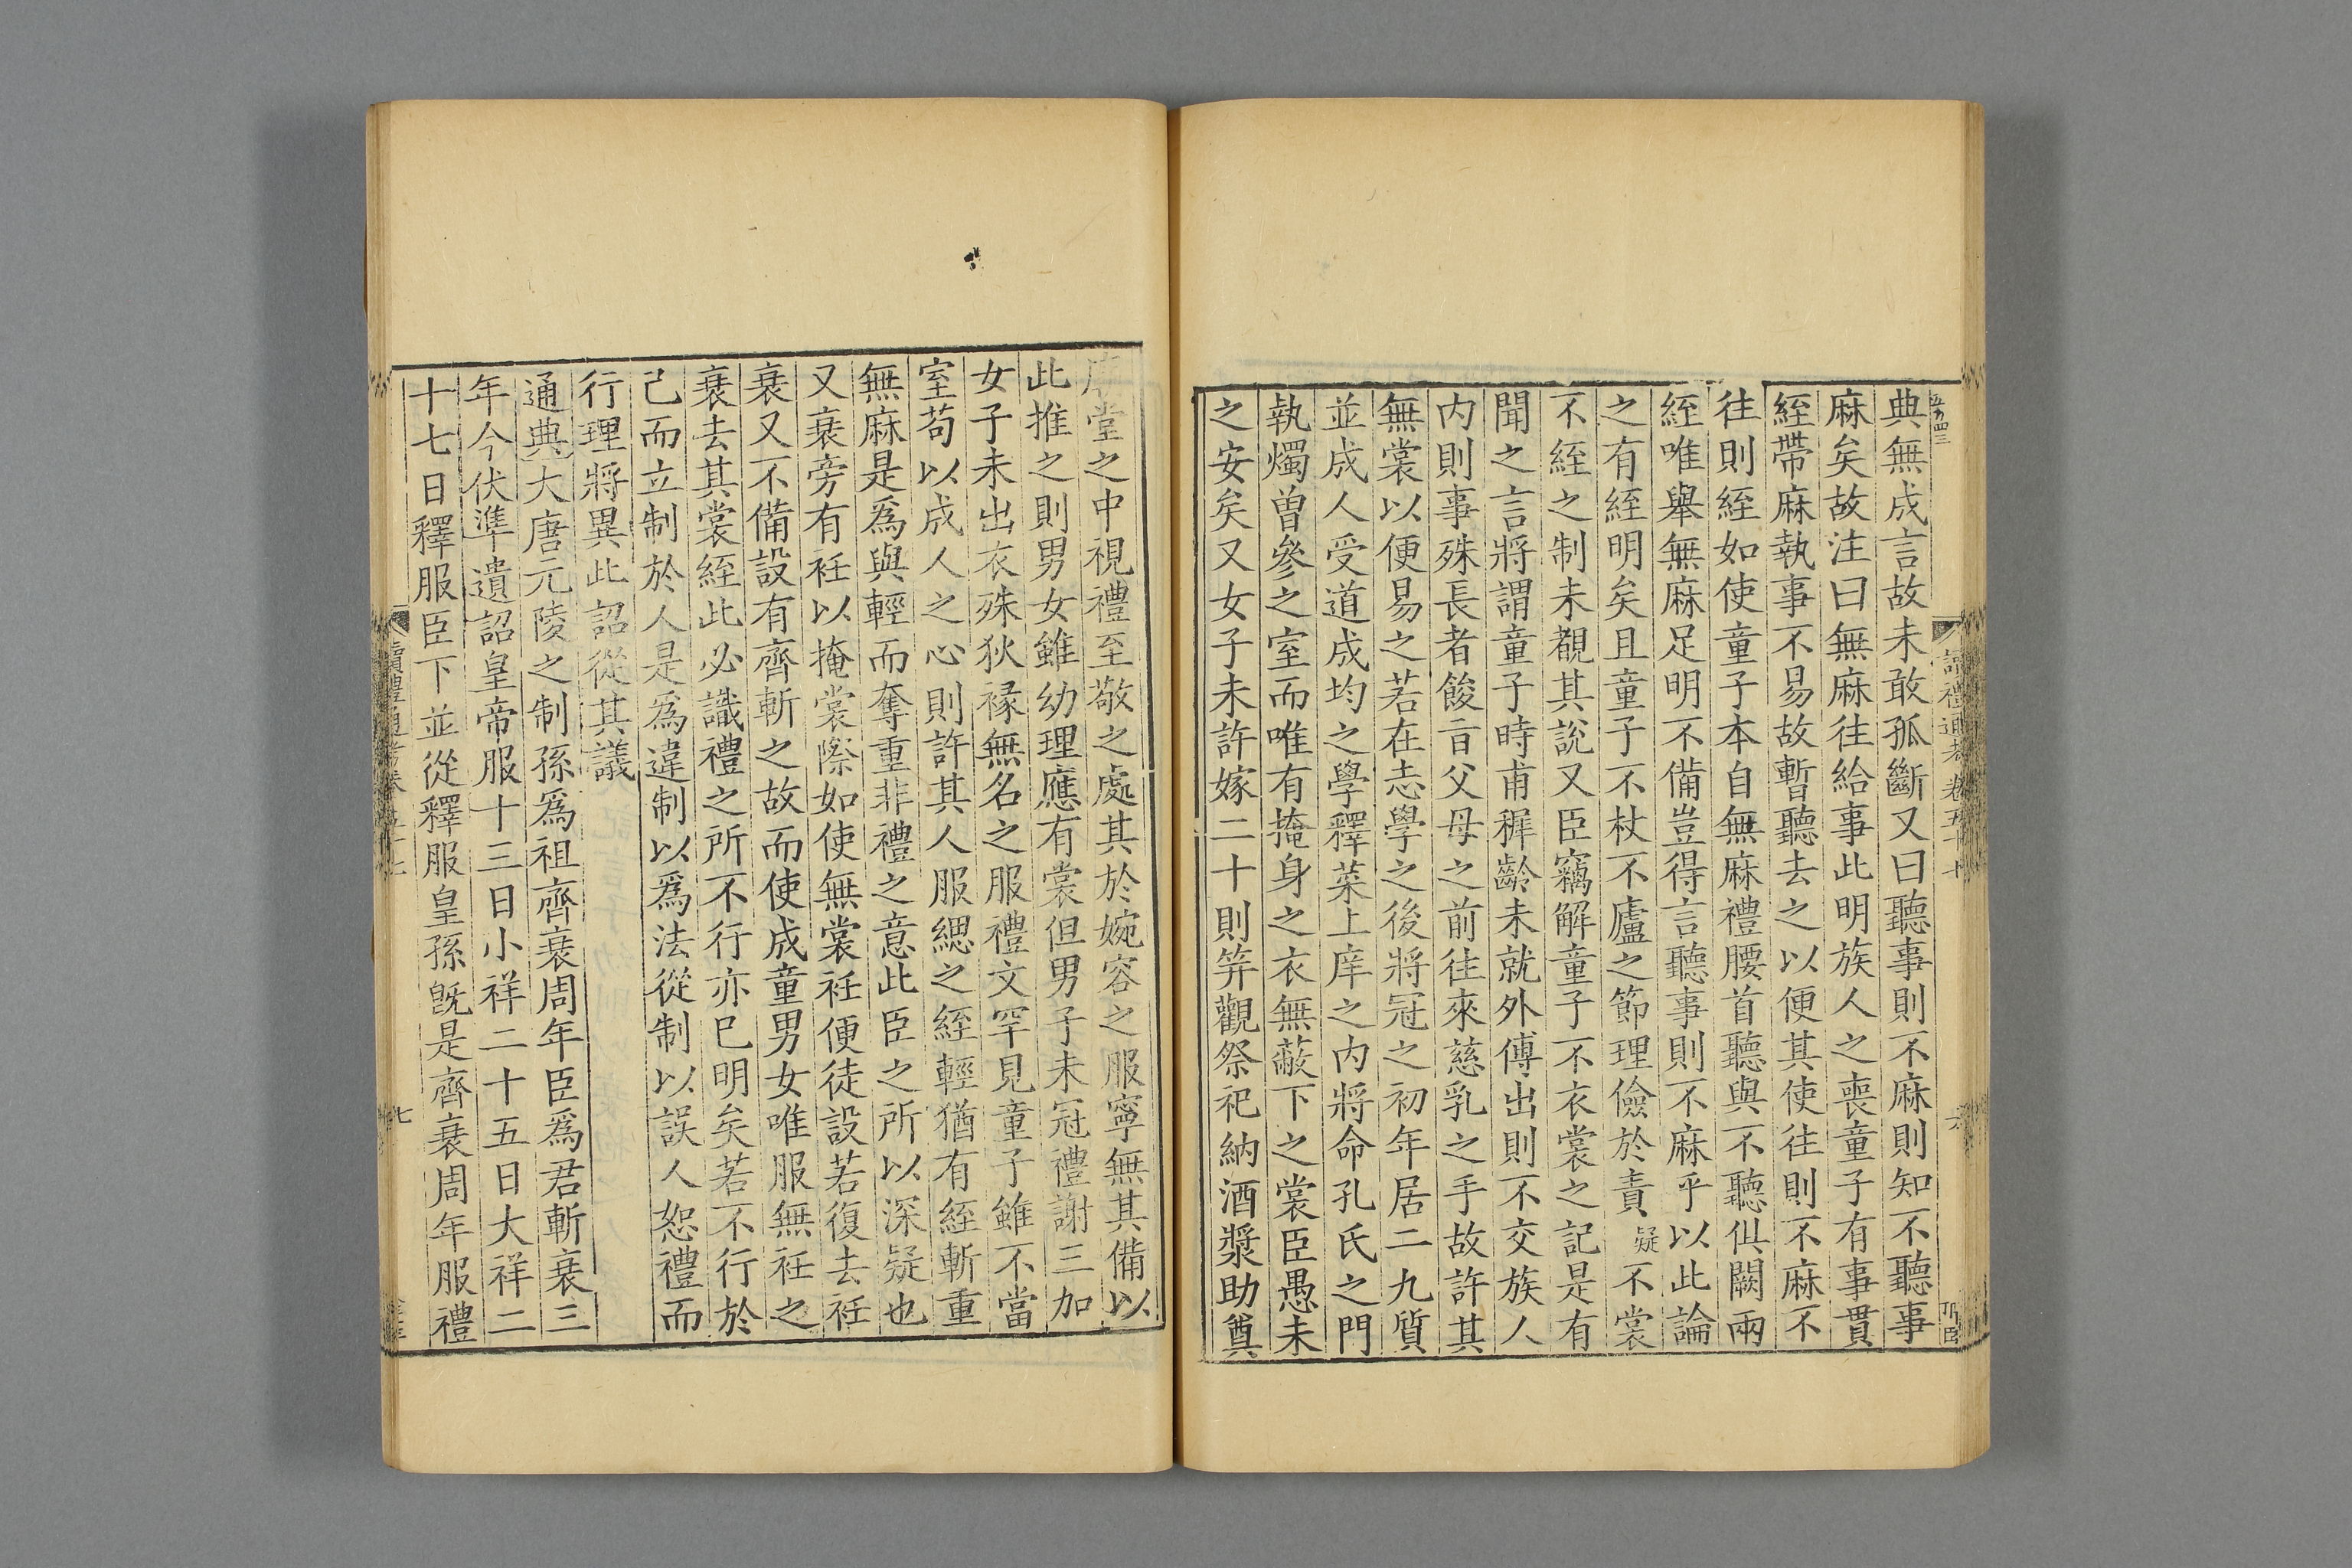 典無成言故未敢孤斷又曰聽事則不麻則知不聽事
麻矣故注曰無麻往給事此明族人之喪童子有事貫
絰帶麻執事不易故暫聽去之以便其使往則不麻不
往則絰如使童子本自無麻禮腰首聽與不聽俱闕兩
絰唯舉無麻足明不備豈得言聽事則不麻乎以此論
之有絰明矣且童子不杖不廬之節理儉於責疑不裳
不絰之制未覩其說又臣竊解童子不衣裳之記是有
聞之言將謂童子時甫稺齡未就外傅出則不交族人
内則事殊長者餕旨父母之前往來慈乳之手故許其
無裳以便易之若在志學之後將冠之初年居二九質
並成人受道成均之學釋菜上庠之内將命孔氏之門
執燭曾參之室而唯有掩身之衣無蔽下之裳臣愚未
之安矣又女子未許嫁二十則笄觀祭祀納酒漿助奠
堂之中視禮至敬之處其於婉容之服寧無其備以
此推之則男女雖幼理應有裳但男子未冠禮謝三加
女子未出衣殊狄褖無名之服禮文罕見童子雖不當
室苟以成人之心則許其人服緦之絰輕猶有絰斬重
無麻是爲與輕而奪重非禮之意此臣之所以深疑也
又衰旁有衽以掩裳際如使無裳衽便徒設若復去衽
衰又不備設有齊斬之故而使成童男女唯服無衽之
衰去其裳絰此必識禮之所不行亦已明矣若不行於
己而立制於人是爲違制以爲法從制以誤人恕禮而
行理將異此詔從其議
通典大唐元陵之制孫爲祖齊衰周年臣爲君斬衰三
年今伏準遺詔皇帝服十三日小祥二十五日大祥二
十七日釋服臣下並從釋服皇孫旣是齊衰周年服禮
讀禮通考卷五十七
七